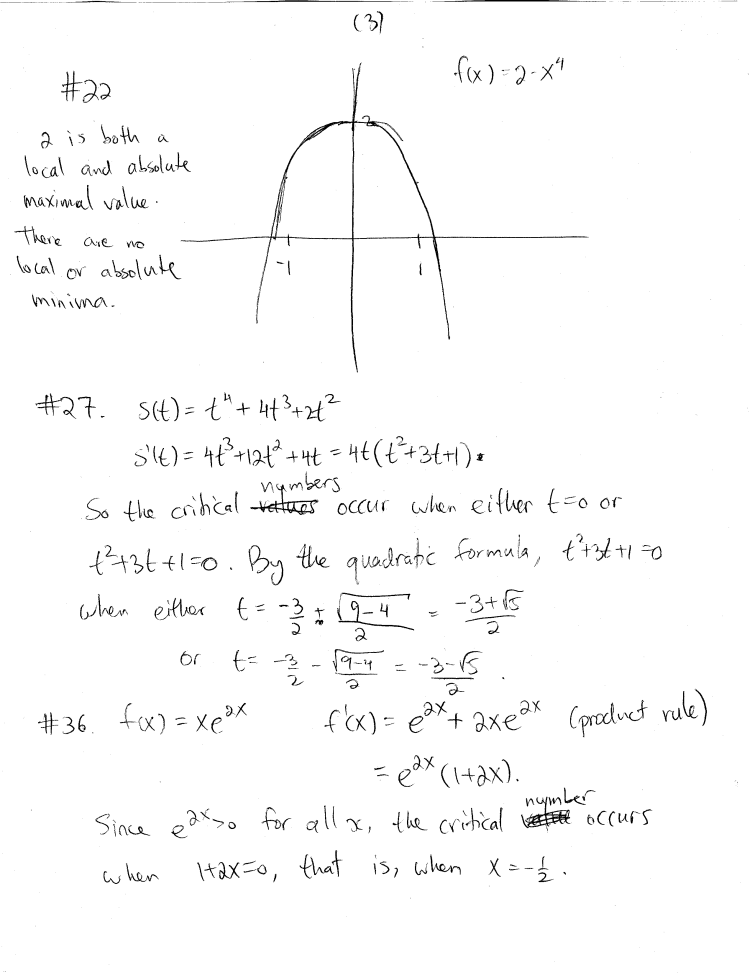 (3)
#22
f(x) = 2-x⁴
2 is both a
local and absolute
maximal value.
There are no
local or absolute
minima.
2
-1
1
#27. S(t) = t⁴ + 4t³+2t²
S'(t) = 4t³+12t²+4t = 4t(t²+3t+1).
So the critical numbers occur when either t=0 or
t²+3t+1=0. By the quadratic formula, t²+3t+1=0
when either t = -3/2 + √(9-4)/2 = (-3+√5)/2
or t= -3/2 - √(9-4)/2 = (-3-√5)/2.
#36. f(x) = xe²ˣ f'(x) = e²ˣ + 2xe²ˣ (product rule)
= e²ˣ (1+2x).
Since e²ˣ>0 for all x, the critical number occurs
when 1+2x=0, that is, when x = -1/2.